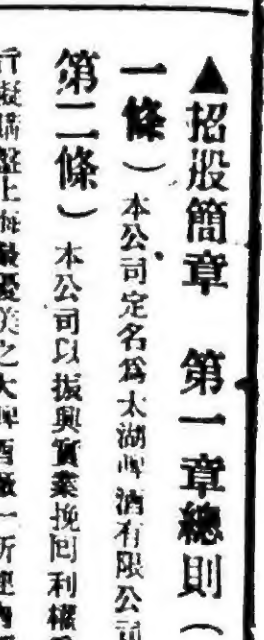 ▲招股簡章 第一章總則（
一條）本公司定名爲太湖啤酒有限公司
第二條）本公司以振興實業挽回利權
行擬購盤上海最優美之大啤酒廠一所建